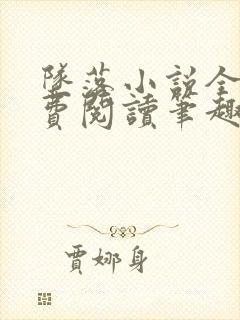 墜落小說全
費閱讀筆趣
賈娜身